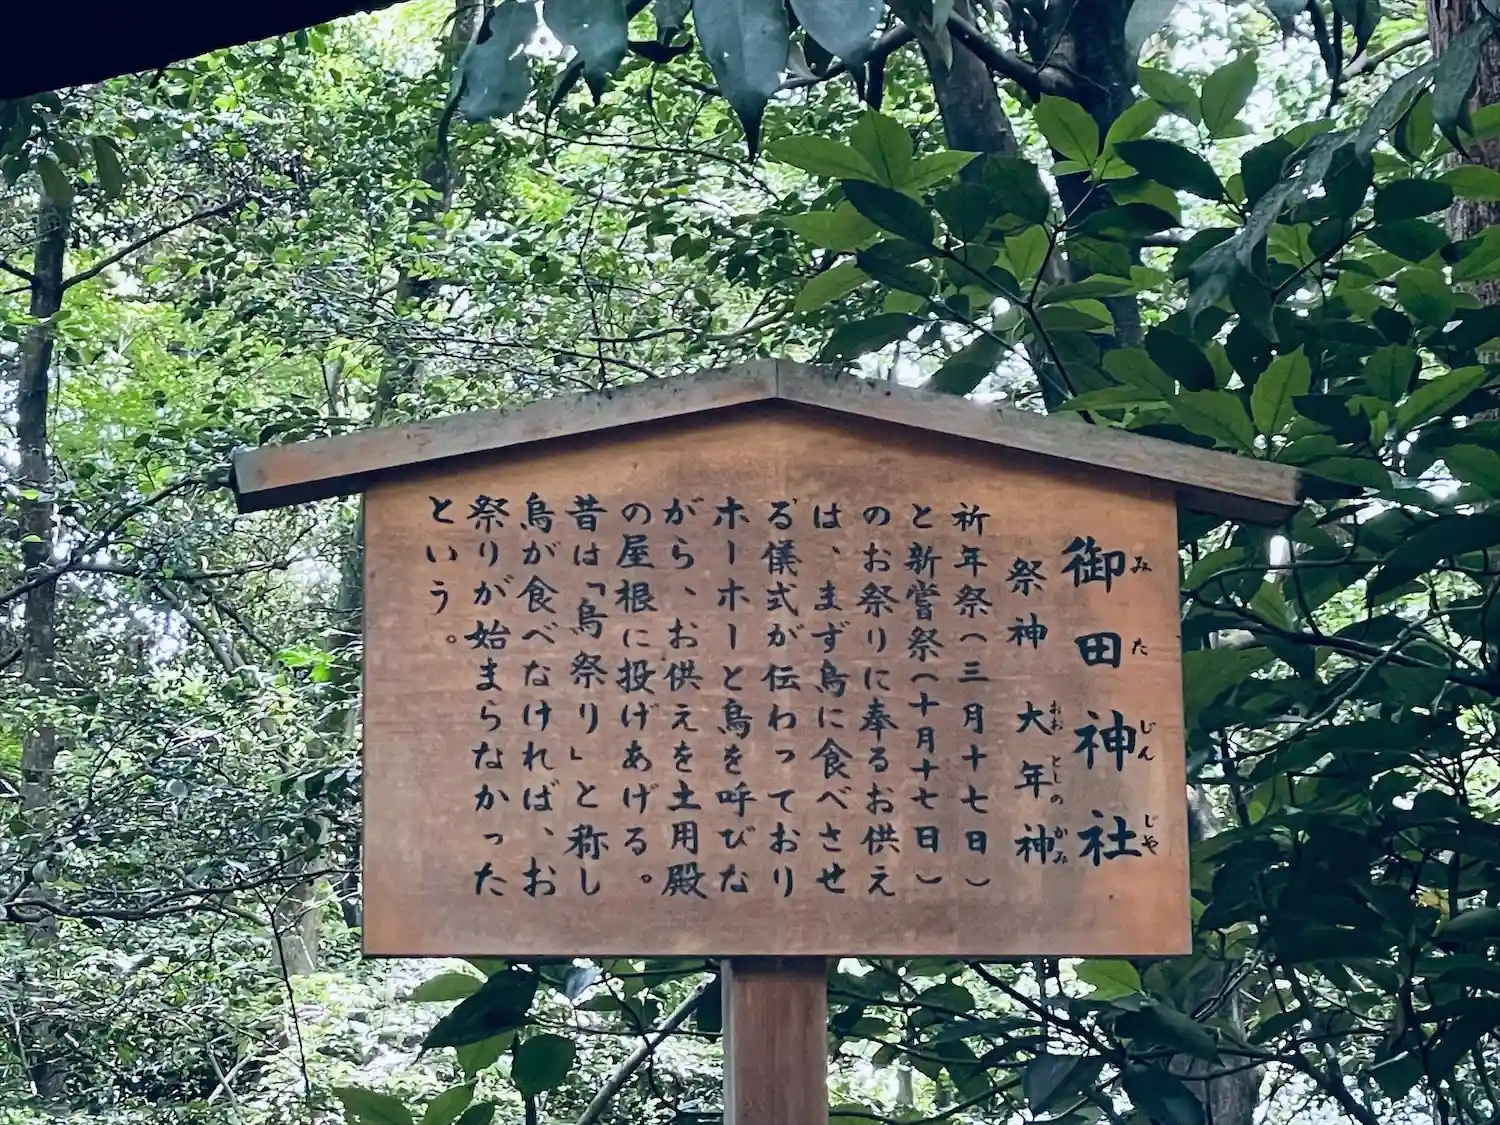 御田神社
みたじんじや
祭神 大年神
おおとしのかみ
祈年祭（三月十七日）
と新嘗祭（十月十七日）
のお祭りに奉るお供え
は、まず烏に食べさせ
る儀式が伝わっており
ホーホーと烏を呼びな
がら、お供えを土用殿
の屋根に投げあげる。
昔は「烏祭り」と称し
烏が食べなければ、お
祭りが始まらなかった
という。